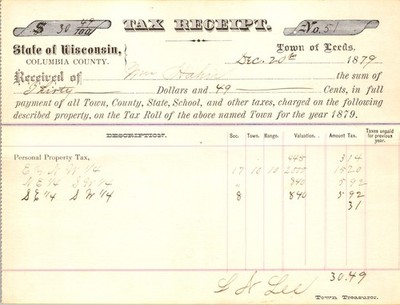 $ 30 49/100 TAX RECEIPT. No. 51
State of Wisconsin, Town of Leeds.
COLUMBIA COUNTY. Dec. 20th 1879
Received of Wm the sum of
Thirty Dollars and 49 Cents, in full
payment of all Town, County, State, School, and other taxes, charged on the following
described property, on the Tax Roll of the above named Town for the year 1879.
DESCRIPTION. Sec. Town. Range. Valuation. Amount Tax. Taxes unpaid for previous year.
Personal Property Tax, 445 3 14
E ½ N W ¼ 17 10 10
S W ¼ 840 5 92
S E ¼ S W ¼ 8 840 5 92
31
30.49
Lee
Town Treasurer.